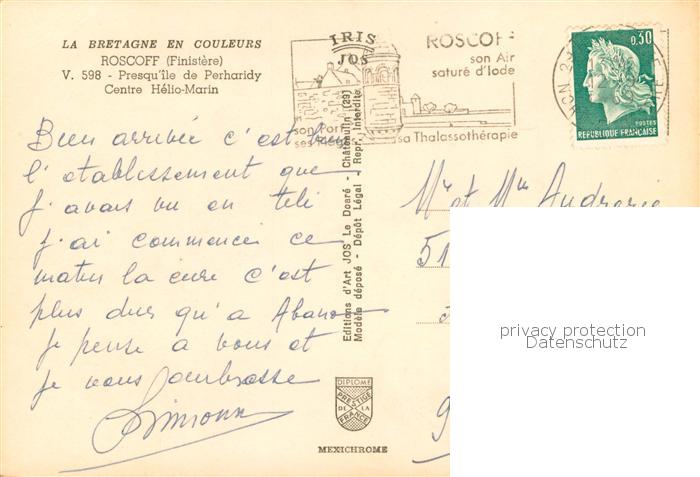 LA BRETAGNE EN COULEURS
ROSCOFF (Finistère)
V. 598 - Presqu'île de Perharidy
Centre Hélio-Marin
IRIS
JOS
ROSCOFF
son Air
saturé d'Iode
son Port
ses
sa Thalassothérapie
0,30
POSTES
REPUBLIQUE FRANÇAISE
Bien arrivée c'est bien
l'etablissement que
j'avais vu en teli
j'ai commencer ce
matin la cure c'est
plus dur qu'a Abano
je pense a vous et
je vous embrasse
Simone
Editions d'Art JOS Le Doaré - Châteaulin (29)
Modèle déposé - Dépôt Légal - Repr. Interdite
Mr et Mme
51
9
DIPLOME
PRESTIGE
DE LA
FRANCE
MEXICHROME
privacy protection
Datenschutz